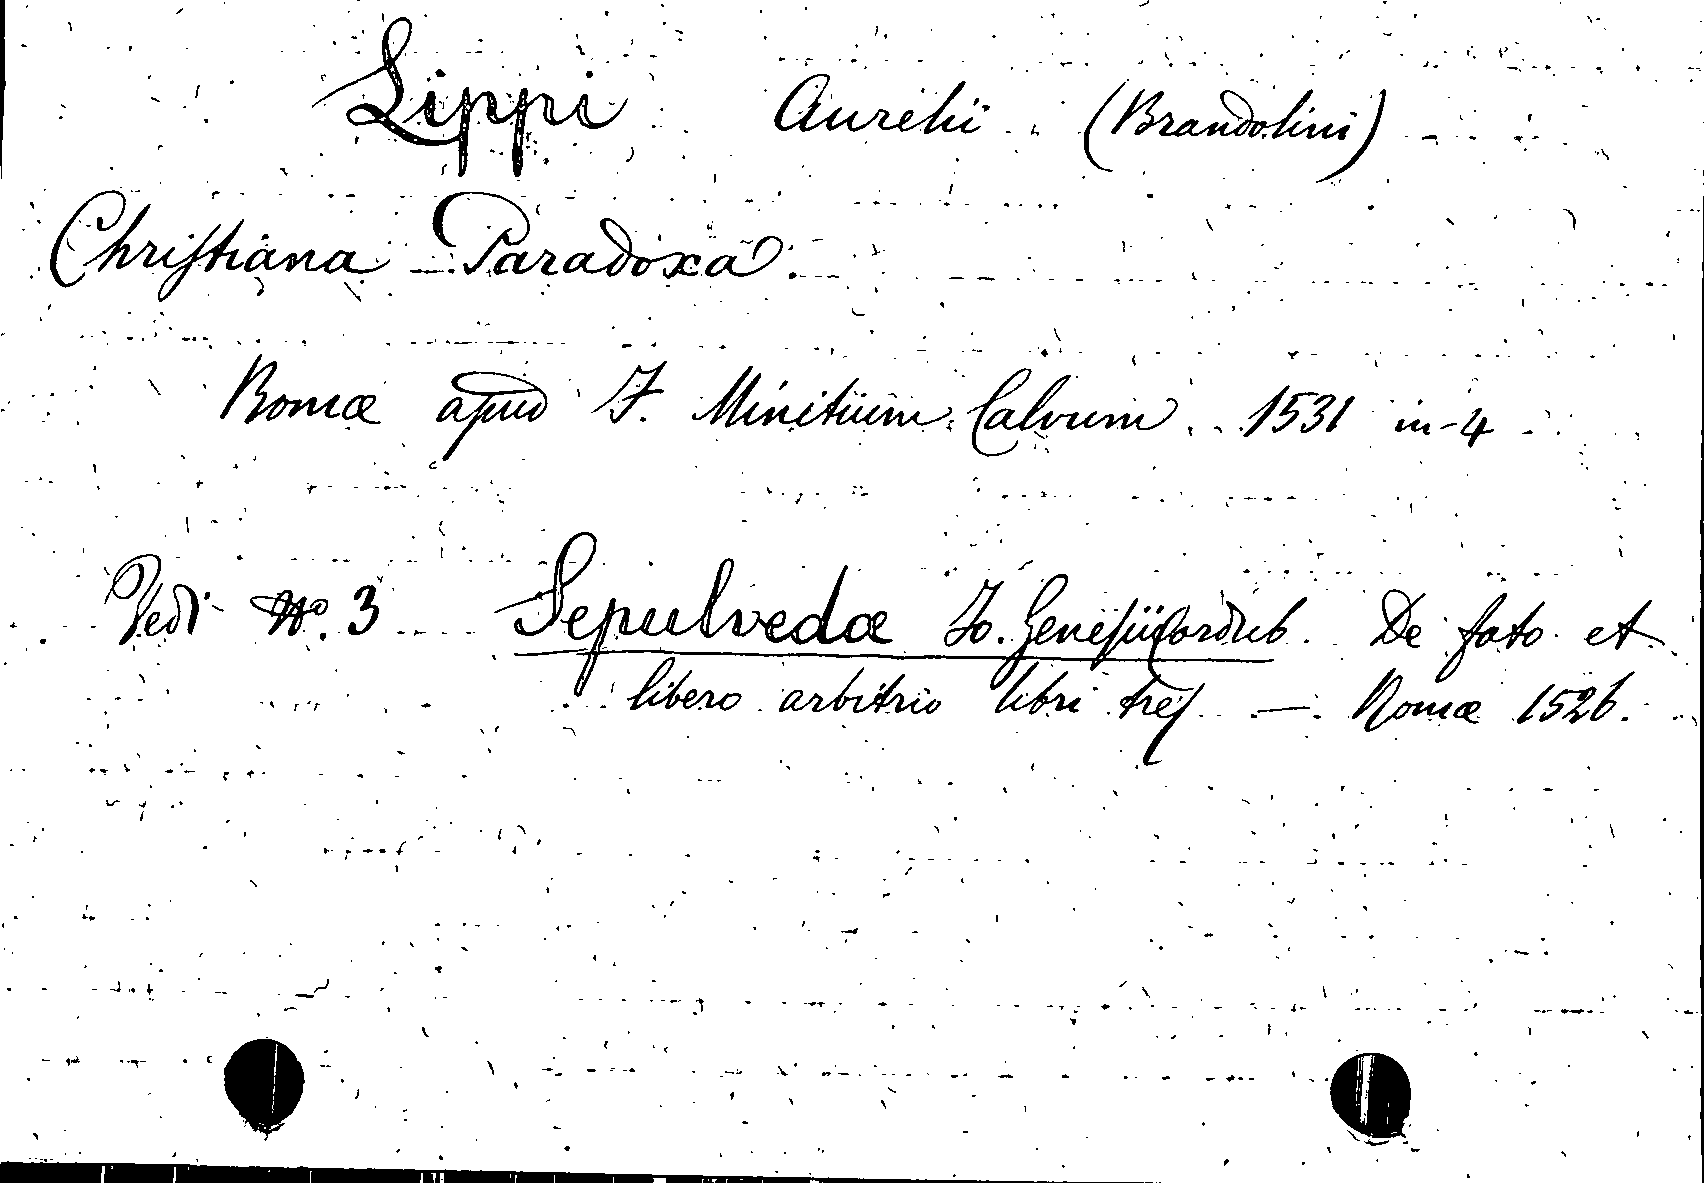 Lippi Aurelii (Brandolini)
Christiana Paradoxa.
Romæ apud F. Minitium Calvum 1531 in-4
Vedi Nº. 3 Sepulvedæ Jo. Genesii Cordub. De fato et
libero arbitrio libri tres — Romæ 1526.